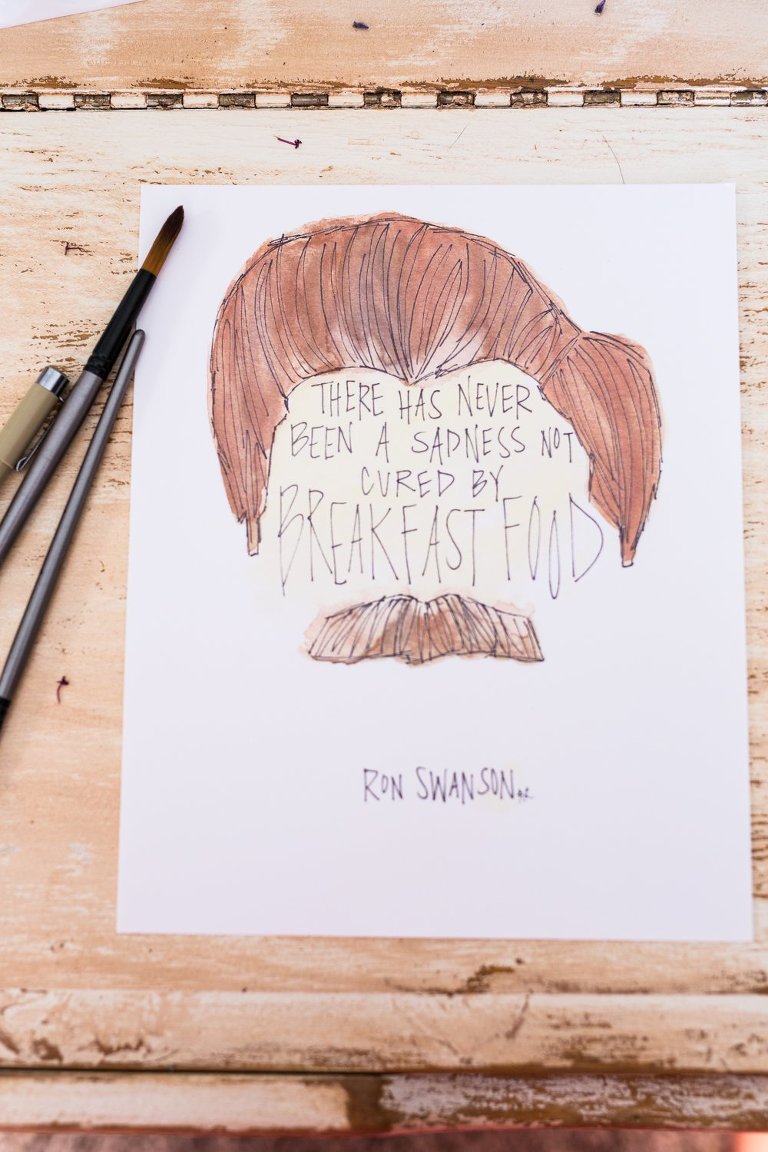 THERE HAS NEVER
BEEN A SADNESS NOT
CURED BY
BREAKFAST FOOD
RON SWANSON